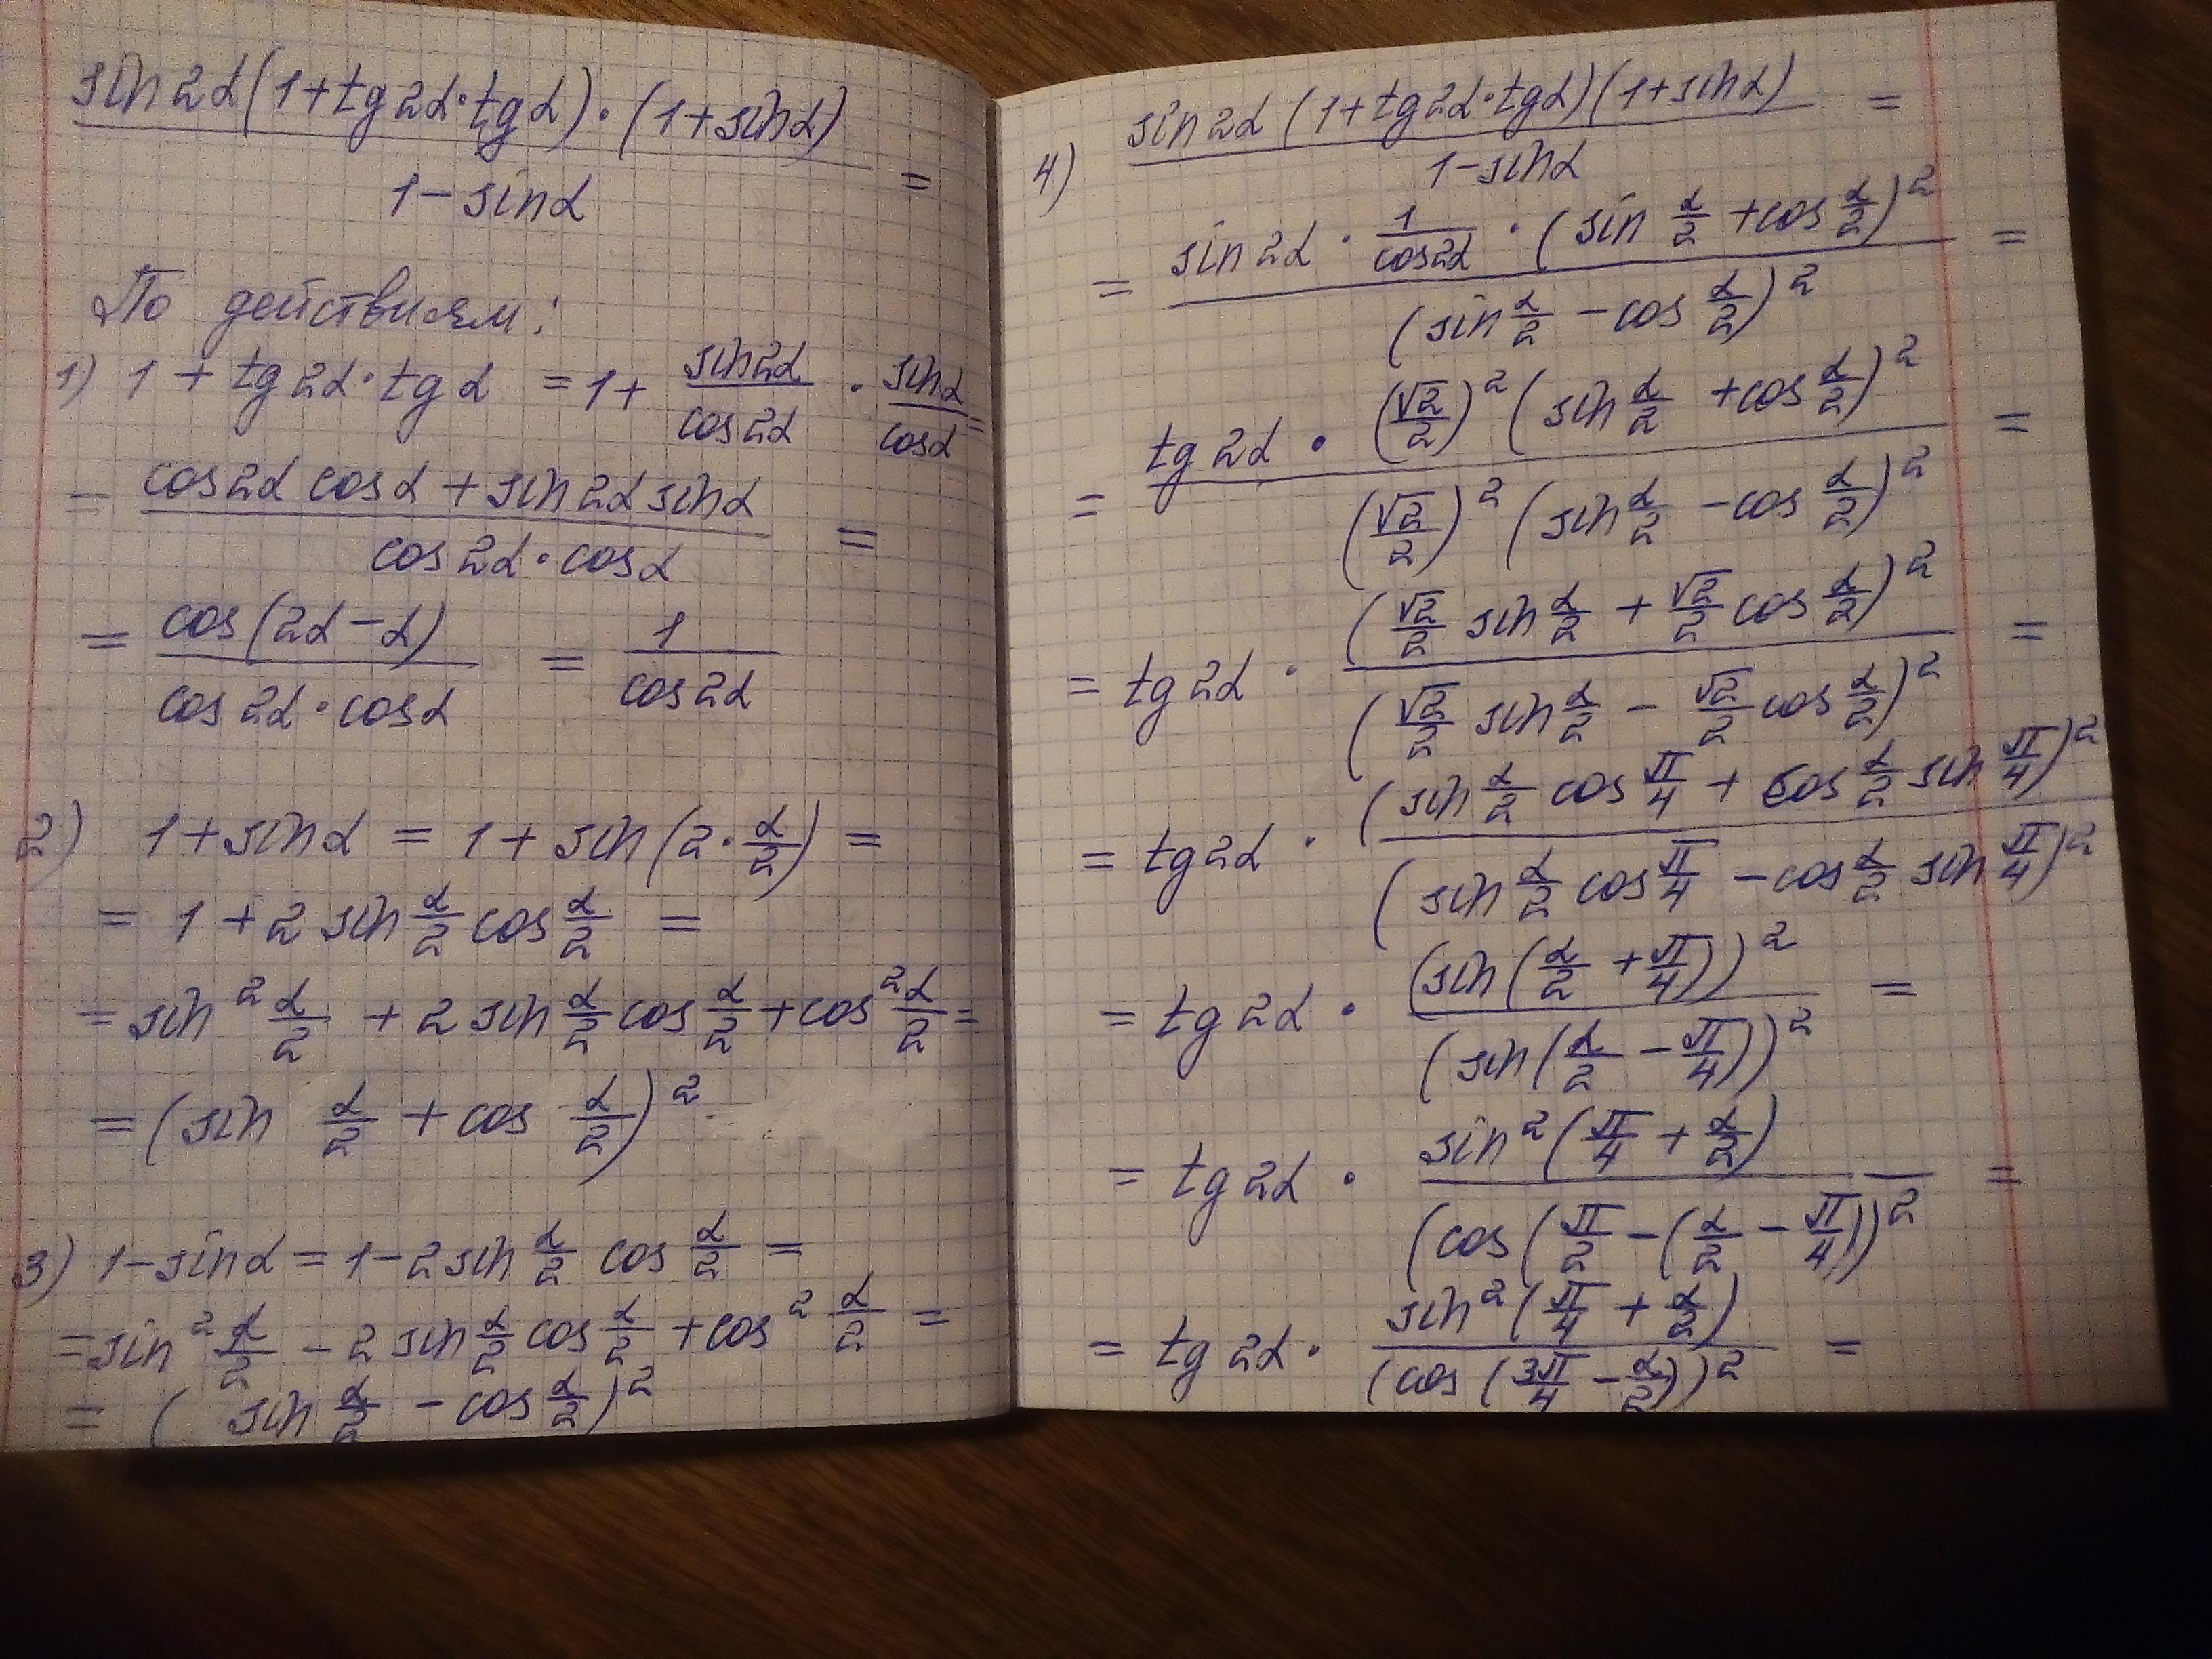 sin2α(1+tg2α·tgα)·(1+sinα)
1−sinα =
По действиям:
1) 1 + tg2α·tgα = 1+ sin2α/cos2α · sinα/cosα =
= (cos2α cosα + sin2α sinα)/(cos2α·cosα) =
= cos(2α−α)/(cos2α·cosα) = 1/cos2α
2) 1+sinα = 1 + sin(2·α/2) =
= 1 + 2 sin α/2 cos α/2 =
= sin² α/2 + 2 sin α/2 cos α/2 + cos² α/2 =
= (sin α/2 + cos α/2)²
3) 1−sinα = 1−2 sin α/2 cos α/2 =
= sin² α/2 − 2 sin α/2 cos α/2 + cos² α/2 =
= (sin α/2 − cos α/2)²
4) sin2α(1+tg2α·tgα)(1+sinα)/(1−sinα) =
= sin2α · 1/cos2α · (sin α/2 + cos α/2)²/(sin α/2 − cos α/2)² =
= tg2α · (√2/2)²(sin α/2 + cos α/2)²/(√2/2)²(sin α/2 − cos α/2)² =
= tg2α · (√2/2 sin α/2 + √2/2 cos α/2)²/(√2/2 sin α/2 − √2/2 cos α/2)² =
= tg2α · (sin α/2 cos π/4 + cos α/2 sin π/4)²/(sin α/2 cos π/4 − cos α/2 sin π/4)²
= tg2α · (sin(α/2 + π/4))²/(sin(α/2 − π/4))² =
= tg2α · sin²(π/4 + α/2)/(cos(π/2 − (α/2 − π/4))² =
= tg2α · sin²(π/4 + α/2)/(cos(3π/4 − α/2))² =